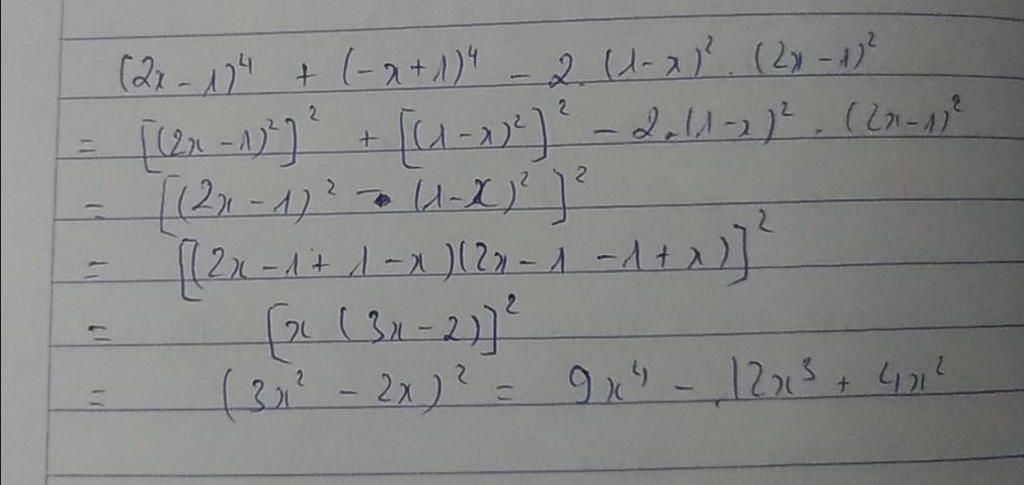 (2x - 1)⁴ + (-x + 1)⁴ - 2. (1 - x)² . (2x - 1)²
= [(2x - 1)²]² + [(1 - x)²]² - 2.(1 - x)² . (2x - 1)²
= [(2x - 1)² - (1 - x)²]²
= [(2x - 1 + 1 - x)(2x - 1 - 1 + x)]²
= [x (3x - 2)]²
= (3x² - 2x)² = 9x⁴ - 12x³ + 4x²